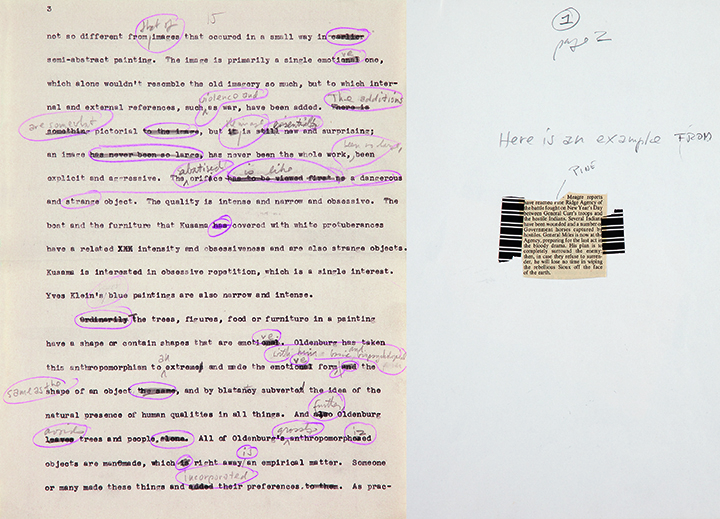 3
15
that of
not so different from images that occured in a small way in earlier
ve
semi-abstract painting. The image is primarily a single emotional one,
which alone wouldn't resemble the old imagery so much, but to which inter-
violence and
The additions
nal and external references, such as war, have been added. There is
are somewhat
the image
essentially
something pictorial to the image, but it is still new and surprising;
been so large,
an image has never been so large, has never been the whole work, been
abatised
is like
explicit and aggressive. The orifice has to be viewed first as a dangerous
and strange object. The quality is intense and narrow and obsessive. The
boat and the furniture that Kusama has covered with white protuberances
have a related XXX intensity and obsessiveness and are also strange objects.
Kusama is interested in obsessive repetition, which is a single interest.
Yves Klein's blue paintings are also narrow and intense.
Ordinarily The trees, figures, food or furniture in a painting
ve
have a shape or contain shapes that are emotional. Oldenburg has taken
an
ve
this anthropomorphism to extremes and made the emotional form and the
same as the
shape of an object the same, and by blatancy subverted the idea of the
natural presence of human qualities in all things. And also Oldenburg
further
avoids
grossly
is
leaves trees and people, alone. All of Oldenburg's anthropomorphosed
is
objects are manmade, which is right away an empirical matter. Someone
incorporated
or many made these things and added their preferences to them. As prac-
1
page 2
Here is an example FROM
PINE
Meagre reports
have reached Pine Ridge Agency of
the battle fought on New Year's Day
between General Carr's troops and
the hostile Indians. Several Indians
have been wounded and a number of
Government horses captured by
hostiles. General Miles is now at the
Agency, preparing for the last act in
the bloody drama. His plan is to
completely surround the enemy
then, in case they refuse to surren-
der, he will lose no time in wiping
the rebellious Sioux off the face
of the earth.